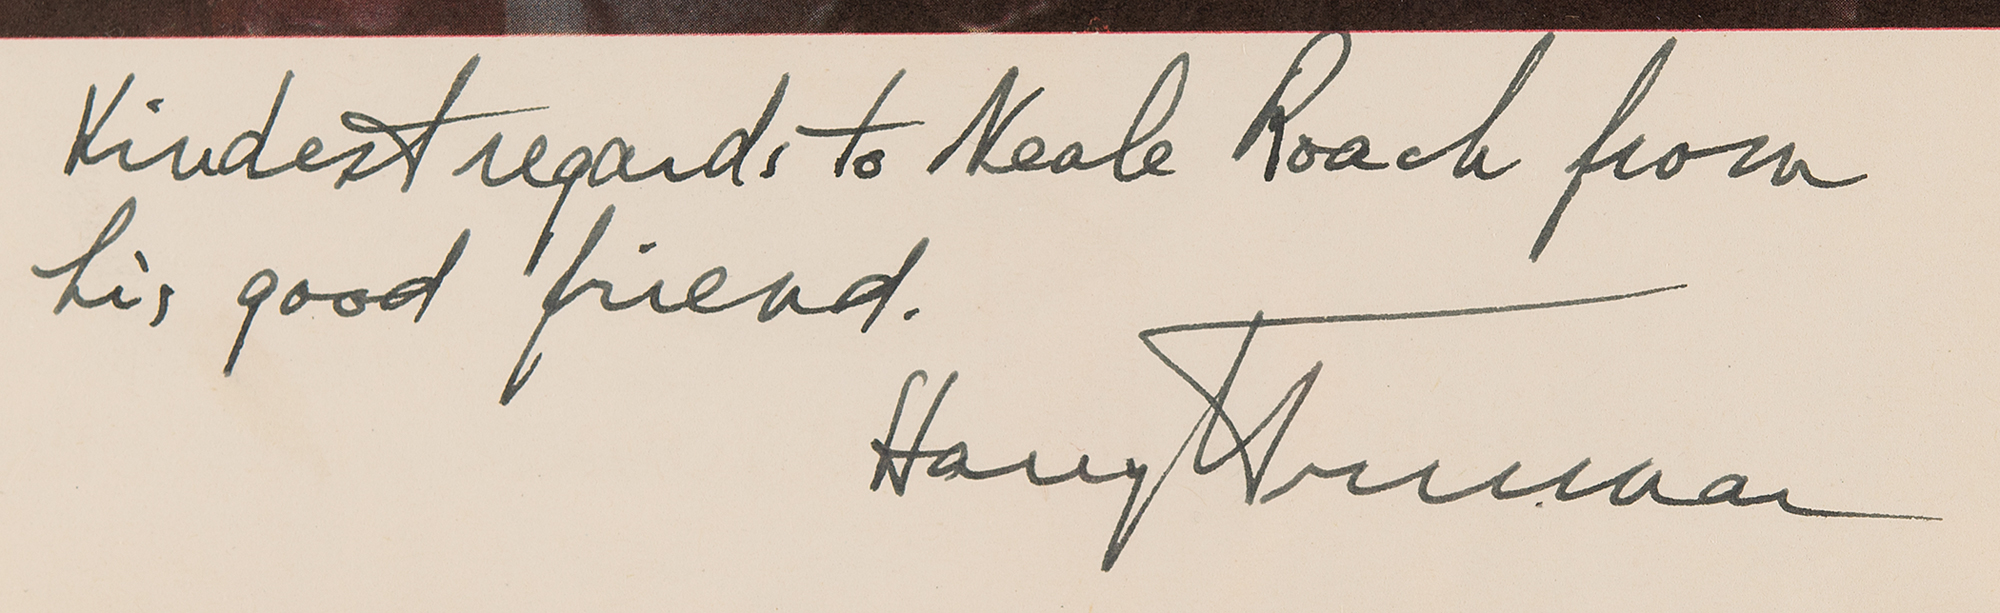 Kindest regards to Neale Roach from
his good friend.
Harry Truman